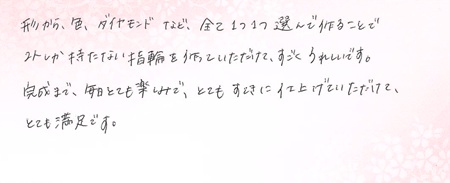 形から、色、ダイヤモンドなど、全て1つ1つ選んで作ることで
2人しか持たない指輪を作っていただけて、すごくうれしいです。
完成まで、毎日とても楽しみで、とてもすてきに仕上げていただけて、
とても満足です。